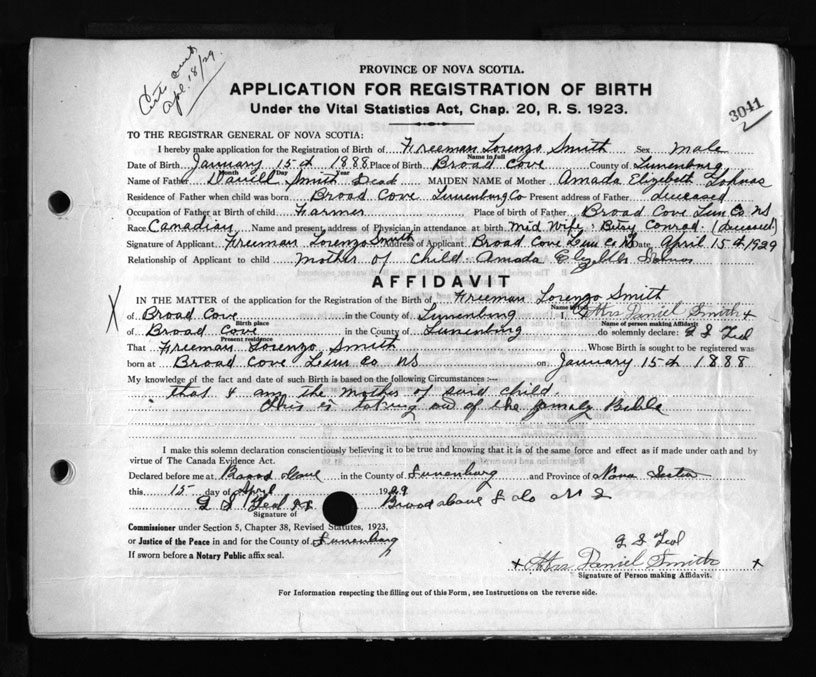 Apl. 18/29.
PROVINCE OF NOVA SCOTIA.
APPLICATION FOR REGISTRATION OF BIRTH
Under the Vital Statistics Act, Chap. 20, R. S. 1923.
3041
TO THE REGISTRAR GENERAL OF NOVA SCOTIA:
I hereby make application for the Registration of Birth of Freeman Lorenzo Smith Sex Male
Name in full
Date of Birth January 15th 1888 Place of Birth Broad Cove County of Lunenburg
Month Day Year
Name of Father Daniel Smith Dead MAIDEN NAME of Mother Amada Elizebeth
Residence of Father when child was born Broad Cove Lunenburg Co Present address of Father deceased
Occupation of Father at Birth of child Farmer Place of birth of Father Broad Cove Lun Co NS
Race Canadian Name and present address of Physician in attendance at birth Mid Wife: Betsy Conrad. (deceased)
Signature of Applicant Freeman Lorenzo Smith Address of Applicant Broad Cove Lun Co NS Date April 15th 1929
Relationship of Applicant to child Mother of child Amada
AFFIDAVIT
IN THE MATTER of the application for the Registration of the Birth of Freeman Lorenzo Smith
Name in full
X of Broad Cove in the County of Lunenburg I, Mrs Daniel Smith x
Birth place Name of person making Affidavit
of Broad Cove in the County of Lunenburg do solemnly declare: G S Teel
Present residence
That Freeman Lorenzo Smith Whose Birth is sought to be registered was
born at Broad Cove Lun Co NS on January 15th 1888
My knowledge of the fact and date of such Birth is based on the following Circumstances:—
that I am the mother of said child.
this is taking out of the famaly Bible
I make this solemn declaration conscientiously believing it to be true and knowing that it is of the same force and effect as if made under oath and by
virtue of The Canada Evidence Act.
Declared before me at Broad Cove in the County of Lunenburg and Province of Nova Scotia
this 15 day of April 1929
G S Teel
Signature of
Commissioner under Section 5, Chapter 38, Revised Statutes, 1923,
or Justice of the Peace in and for the County of Lunenburg
If sworn before a Notary Public affix seal.
G S Teel
x Mrs Daniel Smith x
Signature of Person making Affidavit.
For Information respecting the filling out of this Form, see Instructions on the reverse side.